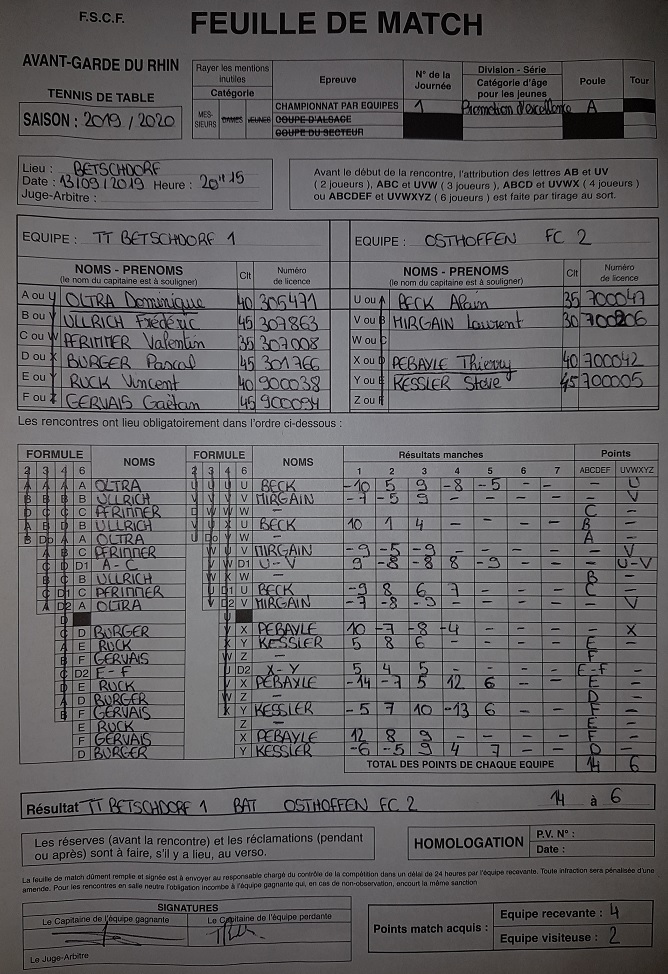 F.S.C.F.
FEUILLE DE MATCH
AVANT-GARDE DU RHIN
TENNIS DE TABLE
SAISON : 2019 / 2020
Rayer les mentions inutiles
Catégorie
MES-SIEURS DAMES JEUNES
Epreuve
N° de la Journée
Division - Série
Catégorie d'âge pour les jeunes
Poule
Tour
CHAMPIONNAT PAR EQUIPES 1 Promotion d'excellence A
COUPE D'ALSACE
COUPE DU SECTEUR
Lieu : BETSCHDORF
Date : 13/09/2019 Heure : 20H15
Juge-Arbitre :
Avant le début de la rencontre, l'attribution des lettres AB et UV
( 2 joueurs ), ABC et UVW ( 3 joueurs ), ABCD et UVWX ( 4 joueurs )
ou ABCDEF et UVWXYZ ( 6 joueurs ) est faite par tirage au sort.
EQUIPE : TT BETSCHDORF 1
EQUIPE : OSTHOFFEN FC 2
NOMS - PRENOMS (le nom du capitaine est à souligner) Clt Numéro de licence
NOMS - PRENOMS (le nom du capitaine est à souligner) Clt Numéro de licence
A ou U OLTRA Dominique 40 305471
B ou V ULLRICH Frédéric 45 307863
C ou W PFRIMMER Valentin 35 307008
D ou X BURGER Pascal 45 301766
E ou Y RUCK Vincent 40 900038
F ou Z GERVAIS Gaëtan 45 900094
U ou A BECK Alain 35 700047
V ou B MIRGAIN Laurent 30 700206
W ou C
X ou D PEBAYLE Thierry 40 700042
Y ou E KESSLER Steve 45 700005
Z ou F
Les rencontres ont lieu obligatoirement dans l'ordre ci-dessous :
FORMULE NOMS FORMULE NOMS Résultats manches Points
2 3 4 6 2 3 4 6 1 2 3 4 5 6 7 ABCDEF UVWXYZ
A OLTRA U BECK -10 5 9 -8 -5 - - - U
B ULLRICH V MIRGAIN -7 -5 9 - - - - - V
C PFRIMMER W - C -
B ULLRICH U BECK 10 1 4 - - - - B -
A OLTRA W - A -
C PFRIMMER V MIRGAIN -9 -5 -9 - - - - - V
D1 A - C D1 U - V 9 -8 -8 8 -9 - - - U-V
B ULLRICH W - B -
C PFRIMMER U BECK -9 8 6 7 - - - C -
A OLTRA V MIRGAIN -7 -8 -9 - - - - - V
D BURGER X PEBAYLE 10 -7 -8 -4 - - - - X
E RUCK Y KESSLER 5 8 6 - - - - E -
F GERVAIS Z - F -
D2 E - F D2 X - Y 5 4 5 - - - - E-F -
E RUCK X PEBAYLE -14 -7 5 12 6 - - E -
D BURGER Z - D -
F GERVAIS Y KESSLER -5 7 10 -13 6 - - F -
E RUCK Z - E -
F GERVAIS X PEBAYLE 12 8 9 - - - - F -
D BURGER Y KESSLER -6 -5 9 4 7 - - D -
TOTAL DES POINTS DE CHAQUE EQUIPE 14 6
Résultat TT BETSCHDORF 1 BAT OSTHOFFEN FC 2 14 à 6
Les réserves (avant la rencontre) et les réclamations (pendant
ou après) sont à faire, s'il y a lieu, au verso.
HOMOLOGATION
P.V. N° :
Date :
La feuille de match dûment remplie et signée est à envoyer au responsable chargé du contrôle de la compétition dans un délai de 24 heures par l'équipe recevante. Toute infraction sera pénalisée d'une
amende. Pour les rencontres en salle neutre l'obligation incombe à l'équipe gagnante qui, en cas de non-observation, encourt la même sanction
SIGNATURES
Le Capitaine de l'équipe gagnante
Le Capitaine de l'équipe perdante
Le Juge-Arbitre
Points match acquis :
Equipe recevante : 4
Equipe visiteuse : 2